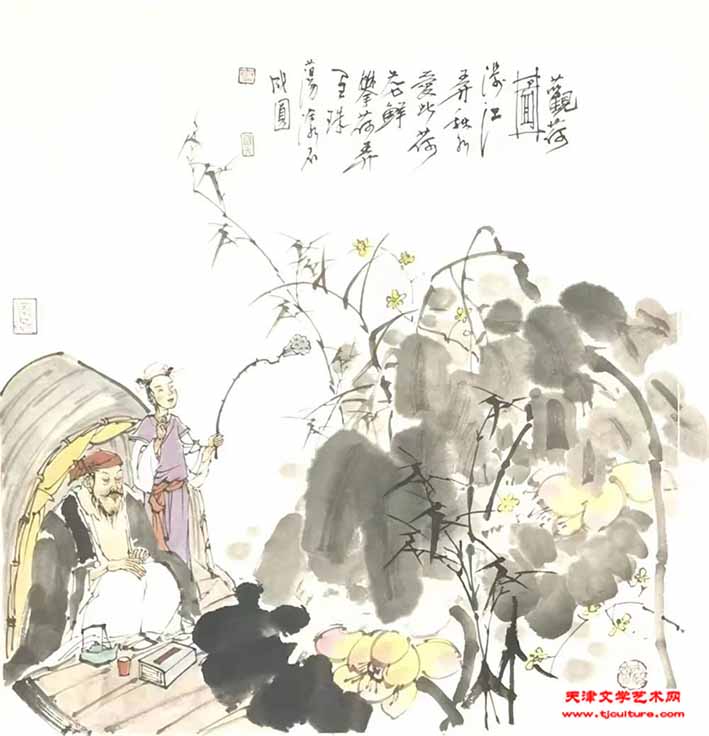 觀荷
圖
涉江
弄秋水
愛此荷
花鮮
攀荷弄
其珠
蕩漾不
成圓
天津文学艺术网
www.tjculture.com